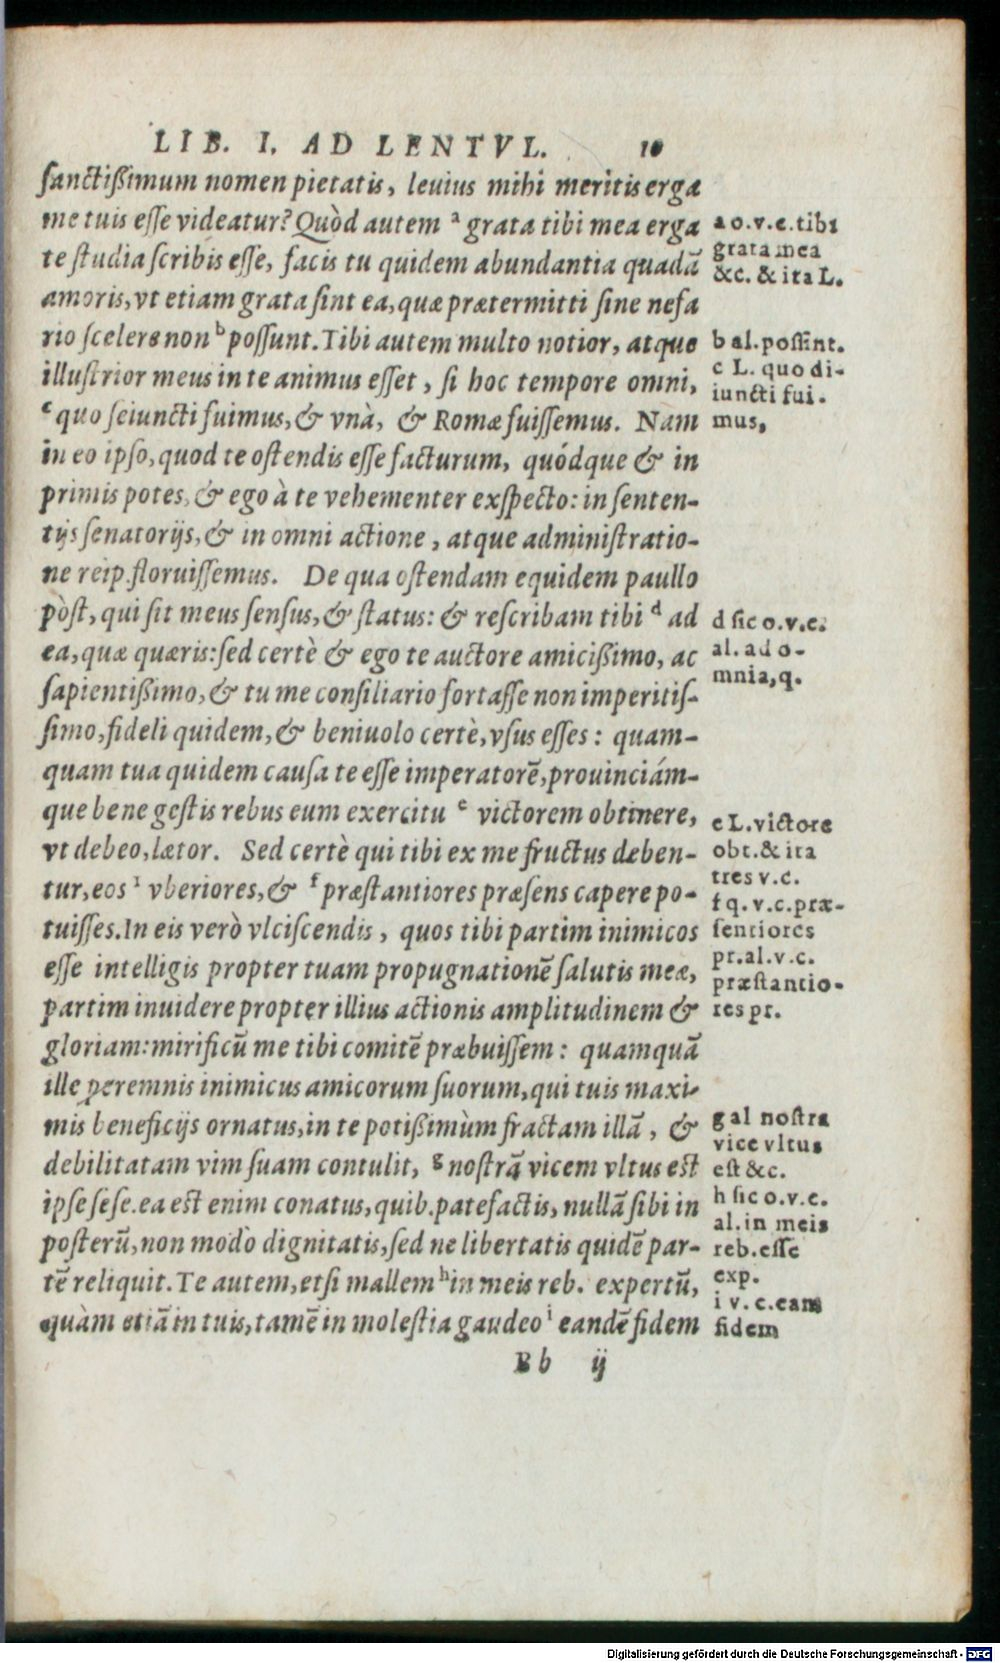 LIB. I. AD LENTVL. 10
ſanctiſſimum nomen pietatis, leuius mihi meritis erga
me tuis eſſe videatur? Quòd autem ᵃ grata tibi mea erga
te ſtudia ſcribis eſſe, facis tu quidem abundantia quadā
amoris, vt etiam grata ſint ea, quæ prætermitti ſine nefa
rio ſcelere non ᵇ poſſunt. Tibi autem multo notior, atque
illuſtrior meus in te animus eſſet, ſi hoc tempore omni,
ᶜ quo ſeiuncti fuimus, & vnà, & Romæ fuiſſemus. Nam
in eo ipſo, quod te oſtendis eſſe facturum, quódque & in
primis potes, & ego à te vehementer exſpecto: in ſenten-
tijs ſenatorijs, & in omni actione, atque adminiſtratio-
ne reip. floruiſſemus. De qua oſtendam equidem paullo
pòſt, qui ſit meus ſenſus, & ſtatus: & reſcribam tibi ᵈ ad
ea, quæ quæris: ſed certè & ego te auctore amiciſſimo, ac
ſapientiſſimo, & tu me conſiliario fortaſſe non imperitiſ-
ſimo, fideli quidem, & beniuolo certè, vſus eſſes: quam-
quam tua quidem cauſa te eſſe imperatorē, prouinciám-
que bene geſtis rebus eum exercitu ᵉ victorem obtinere,
vt debeo, lætor. Sed certè qui tibi ex me fructus deben-
tur, eos ¹ vberiores, & ᶠ præſtantiores præſens capere po-
tuiſſes. In eis verò vlciſcendis, quos tibi partim inimicos
eſſe intelligis propter tuam propugnationē ſalutis meæ,
partim inuidere propter illius actionis amplitudinem &
gloriam: mirificū me tibi comitē præbuiſſem: quamquā
ille peremnis inimicus amicorum ſuorum, qui tuis maxi-
mis beneficijs ornatus, in te potiſſimùm fractam illā, &
debilitatam vim ſuam contulit, ᵍ noſtrā vicem vltus eſt
ipſe ſeſe. ea eſt enim conatus, quib. patefactis, nullā ſibi in
poſterū, non modò dignitatis, ſed ne libertatis quidē par-
tē reliquit. Te autem, etſi mallem ʰ in meis reb. expertū,
quàm etiā in tuis, tamē in moleſtia gaudeo ⁱ eandē fidem
Bb ij
a o.v.c. tibi
grata mea
&c. & ita L.
b al. poſſint.
c L. quo di-
iuncti fui-
mus,
d ſic o.v.c.
al. ad o-
mnia, q.
e L. victore
obt. & ita
tres v.c.
f q. v.c. præ-
ſentiores
pr. al. v.c.
præſtantio-
res pr.
g al noſtra
vice vltus
eſt &c.
h ſic o.v.c.
al. in meis
reb. eſſe
exp.
i v.c. eam
fidem
Digitalisierung gefördert durch die Deutsche Forschungsgemeinschaft - DFG